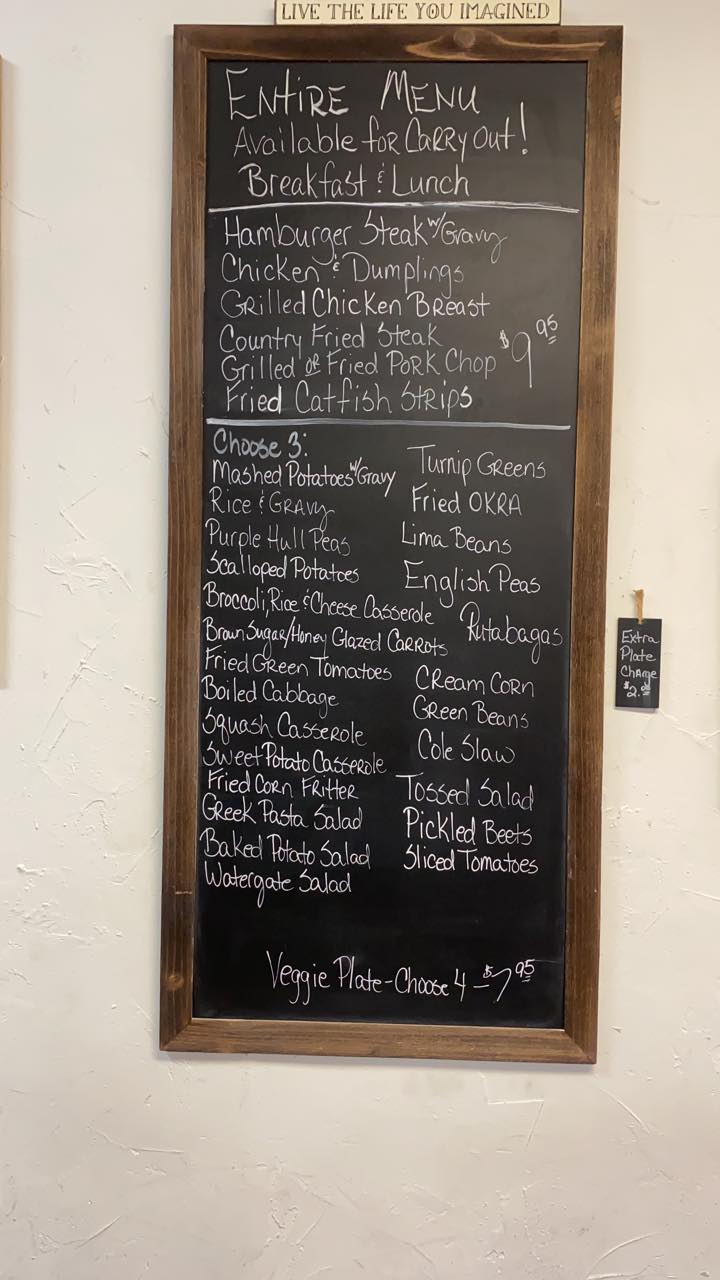 LIVE THE LIFE YOU IMAGINED
ENTIRE MENU
Available for Carry Out!
Breakfast & Lunch
Hamburger Steak w/Gravy
Chicken & Dumplings
Grilled Chicken Breast
Country Fried Steak
Grilled or Fried Pork Chop
Fried Catfish Strips
$9.95
Choose 3:
Mashed Potatoes w/Gravy
Rice & Gravy
Purple Hull Peas
Scalloped Potatoes
Broccoli, Rice & Cheese Casserole
Brown Sugar/Honey Glazed Carrots
Fried Green Tomatoes
Boiled Cabbage
Squash Casserole
Sweet Potato Casserole
Fried Corn Fritter
Greek Pasta Salad
Baked Potato Salad
Watergate Salad
Turnip Greens
Fried OKRA
Lima Beans
English Peas
Rutabagas
Cream Corn
Green Beans
Cole Slaw
Tossed Salad
Pickled Beets
Sliced Tomatoes
Veggie Plate - Choose 4 - $7.95
Extra
Plate
Charge
$2.00